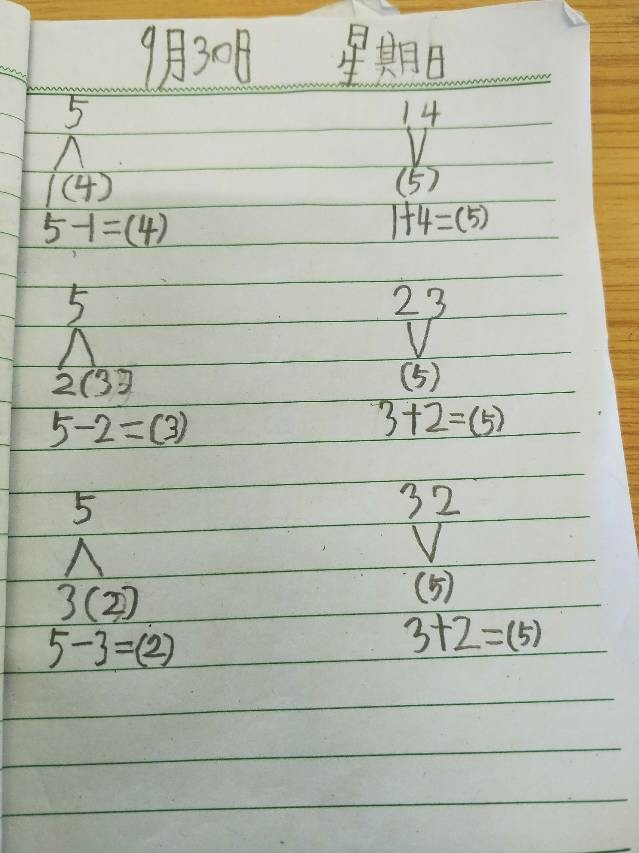 9月30日 星期日
5 14
1(4) (5)
5-1=(4) 1+4=(5)
5 23
2(3) (5)
5-2=(3) 3+2=(5)
5 32
3(2) (5)
5-3=(2) 3+2=(5)